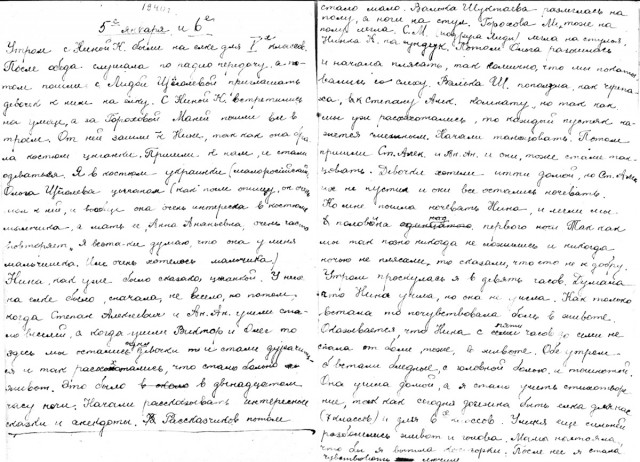 1940 г.
5го января и 6го
Утром с Ниной Н. были на елке для I х классов.
После обеда слушала по радио передачу, а по-
том пошли с Лидой Цуповой приглашать
девочек к нине на ёлку. С Ниной Н. встретились
на улице, а за Гороховой Маней пошли все в
троём. От ней зашли к Нине, так как она бра-
ла костюм цыганки. Пришли к нам, и стали
одеваться. Я в костюм украинки (малороссийский)
Ольга цыганом (как поле опишу, он очень
шёл к ней, и вообще она очень интересна в костюме
мальчика, а мать и Анна Ананьевна, очень часто
повторяет, Я всё-таки думаю, что она у меня
мальчишка. Им очень хотелось мальчика)
Нина, как уже было сказано, цыганкой. У нас
на елке было, сначала, не весело, но потом
когда Степан Алексеевич и Ан. Ан. ушли ста-
ло веселей, а когда ушли Виктор и Олег то
здесь мы остались одни девочки и стали дурачить-
ся и так расхохотались, что стало больно
живот. Это было в двенадцатом
часу ночи. Начали рассказывать интересные
сказки и анекдоты. Рассказчиков потом
стало мало. Валька Шуктаева разлеглась на
полу, а ноги на стул. Горохова М. тоже на
полу легла. С. М. легла на стулья.
Нинка К. на сундук. Потом Ольга разошлась
и начала плясать, так комично, что мы покаты-
вались со смеху. Валька Ш. поползла, как черепа-
ха, в к Степану Алек. комнату, но так как
мы уж расхохотались, то каждый пустяк ка-
жется смешным. Начали танцовать. Потом
пришли Ст. Алек. и Ан. Ан. и они, тоже стали тан-
цовать. Девочки хотели итти домой, но Ст. Алек.
нас не пустил и они все остались ночевать.
Ко мне пошла ночевать Нина, и легли мы.
В половина первого ночи Так как
мы так поздно никогда не ложились и никогда
ночью не плясали, то сказали, что это не к добру.
Утром проснулась я в девять часов. Думала
что Нина ушла, но она не ушла. Как только
встала то почувствовала боль в животе.
Оказывается, что Нина с пяти часов до семи не
спала от боли тоже, в животе. Обе утром
встали бледные, с головной болью и тошнотой.
Она ушла домой, а я стала учить стихотворе-
ние, так как сегодня должна быть елка для нас
(7 классов) и для 6 х классов. У меня еще сильней
разболелись живот и голова. Мама настояла,
что бы я выпила касторки. После неё я стала
чувствовать лучше